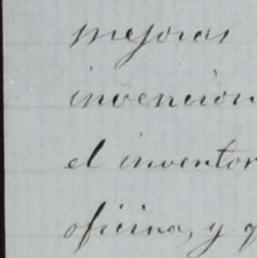 mejoras
invencion
el inventor
oficina, y q